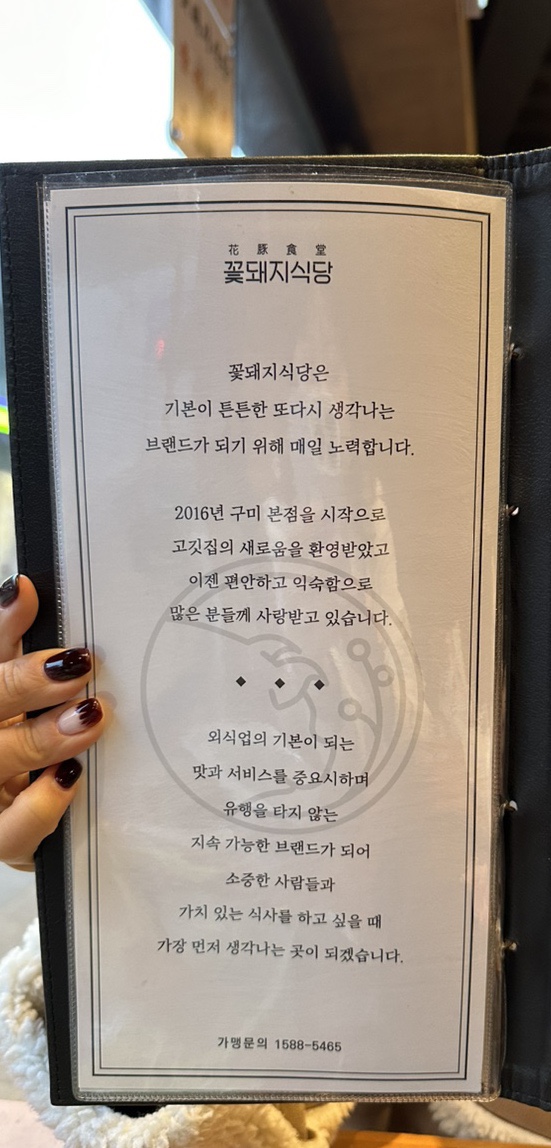 花豚食堂
꽃돼지식당
꽃돼지식당은
기본이 튼튼한 또다시 생각나는
브랜드가 되기 위해 매일 노력합니다.
2016년 구미 본점을 시작으로
고깃집의 새로움을 환영받았고
이젠 편안하고 익숙함으로
많은 분들께 사랑받고 있습니다.
외식업의 기본이 되는
맛과 서비스를 중요시하며
유행을 타지 않는
지속 가능한 브랜드가 되어
소중한 사람들과
가치 있는 식사를 하고 싶을 때
가장 먼저 생각나는 곳이 되겠습니다.
가맹문의 1588-5465